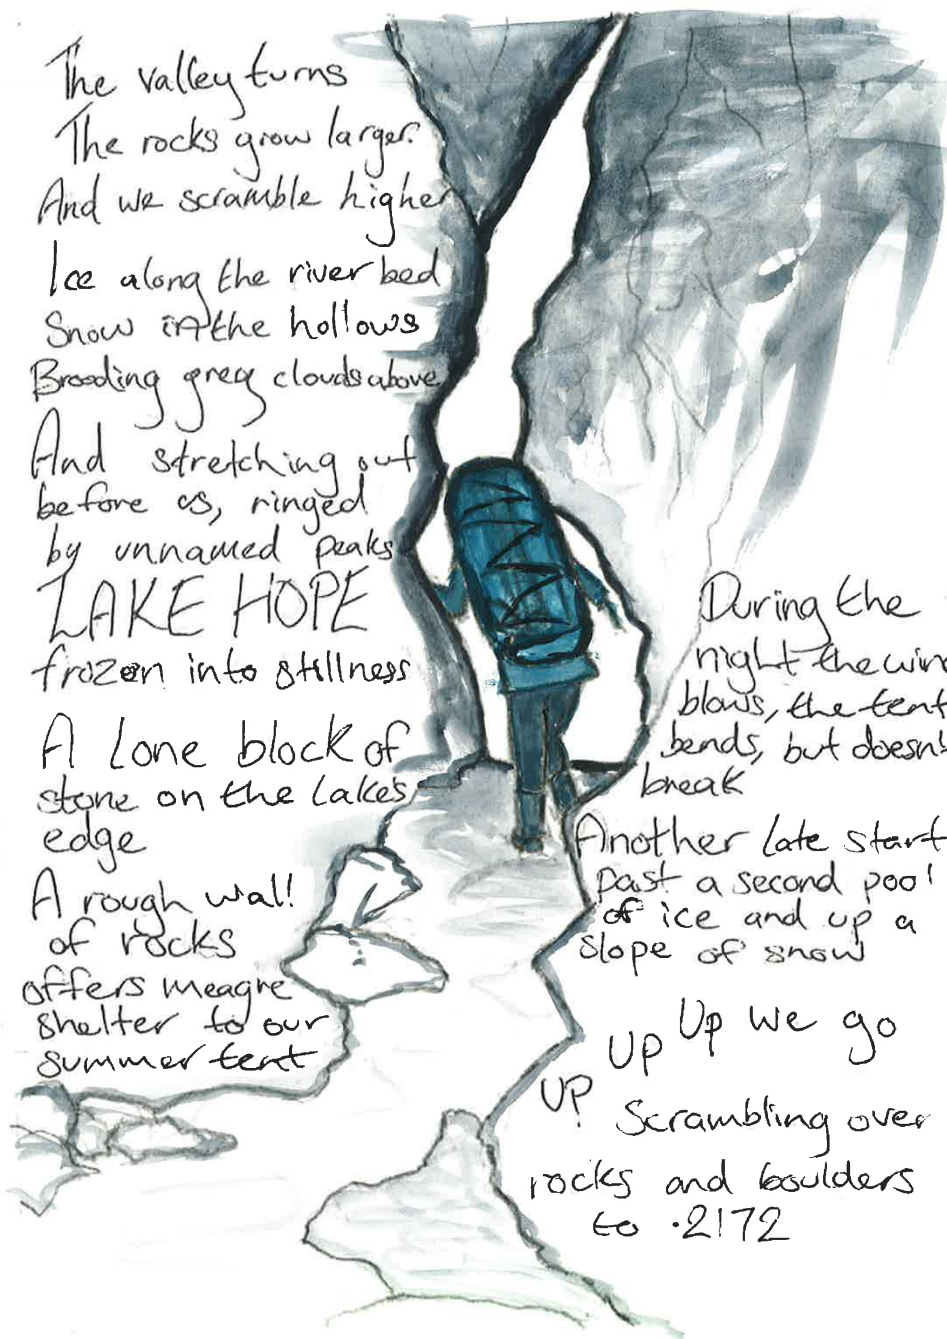 The valley turns
The rocks grow larger.
And we scramble higher
Ice along the river bed
Snow in the hollows
Brooding grey clouds above
And stretching out
before us, ringed
by unnamed peaks
LAKE HOPE
frozen into stillness
A lone block of
stone on the lake's
edge
A rough wall
of rocks
offers meagre
shelter to our
summer tent
During the
night the wind
blows, the tent
bends, but doesn't
break
Another late start
past a second pool
of ice and up a
slope of snow
UP UP Up we go
Scrambling over
rocks and boulders
to .2172